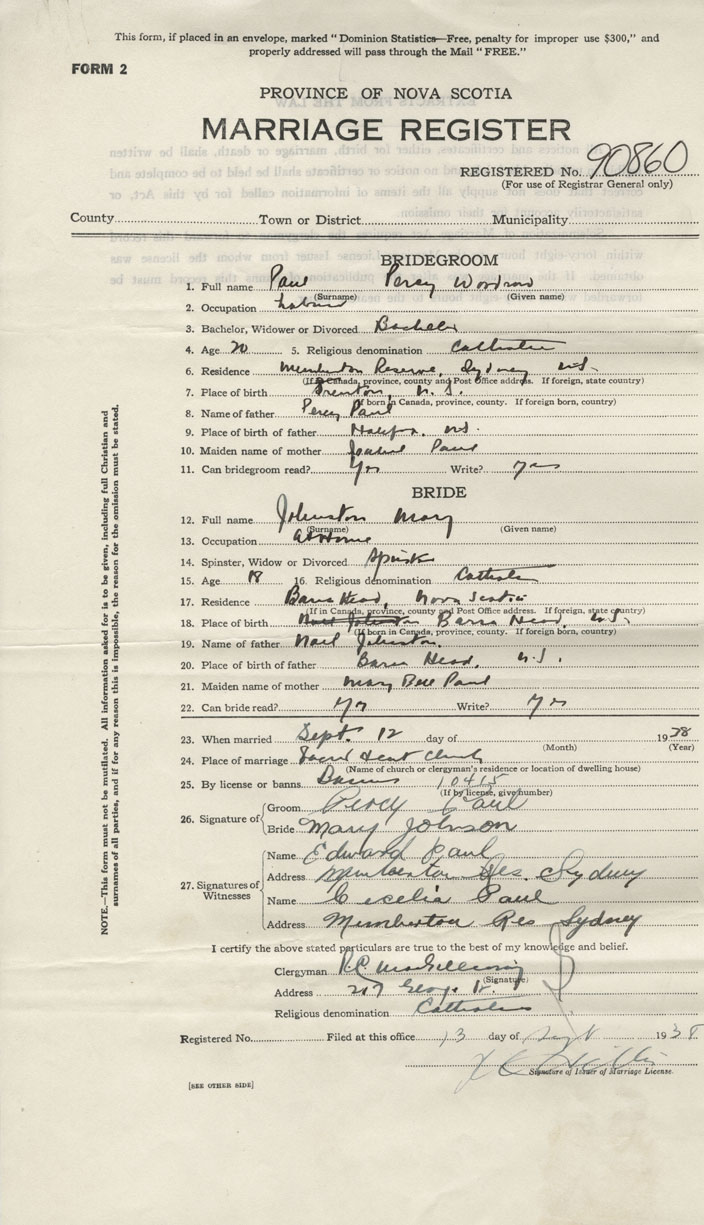 This form, if placed in an envelope, marked "Dominion Statistics—Free, penalty for improper use $300," and
properly addressed will pass through the Mail "FREE."
FORM 2
PROVINCE OF NOVA SCOTIA
MARRIAGE REGISTER
REGISTERED No. 90860
(For use of Registrar General only)
County Town or District Municipality
BRIDEGROOM
1. Full name Paul Percy Woodrow
(Surname) (Given name)
2. Occupation
3. Bachelor, Widower or Divorced Bachelor
4. Age 20 5. Religious denomination Catholic
6. Residence Memberton Reserve, Sydney N.S.
(If in Canada, province, county and Post Office address. If foreign, state country)
7. Place of birth Trenton, N.S.
(If born in Canada, province, county. If foreign born, country)
8. Name of father Percy Paul
9. Place of birth of father Halifax, N.S.
10. Maiden name of mother Paul
11. Can bridegroom read? Yes Write? Yes
BRIDE
12. Full name Johnston Mary
(Surname) (Given name)
13. Occupation At Home
14. Spinster, Widow or Divorced Spinster
15. Age 18 16. Religious denomination Catholic
17. Residence Barra Head, Nova Scotia
(If in Canada, province, county and Post Office address. If foreign, state country)
18. Place of birth Barra Head, N.S.
(If born in Canada, province, county. If foreign born, country)
19. Name of father Noel Johnston.
20. Place of birth of father Barra Head, N.S.
21. Maiden name of mother Mary Bell Paul
22. Can bride read? Yes Write? Yes
23. When married Sept. 12 day of 1938
(Month) (Year)
24. Place of marriage Sacred Heart Church
(Name of church or clergyman's residence or location of dwelling house)
25. By license or banns Banns 10415
(If by license, give number)
26. Signature of Groom Percy Paul
Bride Mary Johnson
27. Signatures of Witnesses
Name Edward Paul
Address Memberton Res. Sydney
Name Cecelia Paul
Address Memberton Res Sydney
I certify the above stated particulars are true to the best of my knowledge and belief.
Clergyman R.C. MacGillivray
(Signature)
Address 217 George St.
Religious denomination Catholic
Registered No. Filed at this office 13 day of Sept 1938
Signature of Issuer of Marriage License.
[SEE OTHER SIDE]
NOTE.—This form must not be mutilated. All information asked for is to be given, including full Christian and
surnames of all parties, and if for any reason this is impossible, the reason for the omission must be stated.